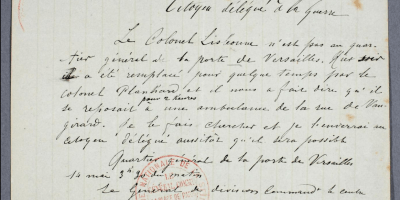 Citoyen délégué à la Guerre
Le Colonel Lisbonne n'est pas au quar-
tier général de la porte de Versailles. Hier soir
il a été remplacé pour quelque temps par le
colonel Planhard et il nous a fait dire qu'il
pour 2 heures
se reposait à une ambulance de la rue de Vau-
girard. Je le fais chercher et je l'enverrai au
citoyen délégué aussitôt qu'il sera possible
Quartier général de la porte de Versailles
14 mai 3h du matin
Le Général de division Command. le centre